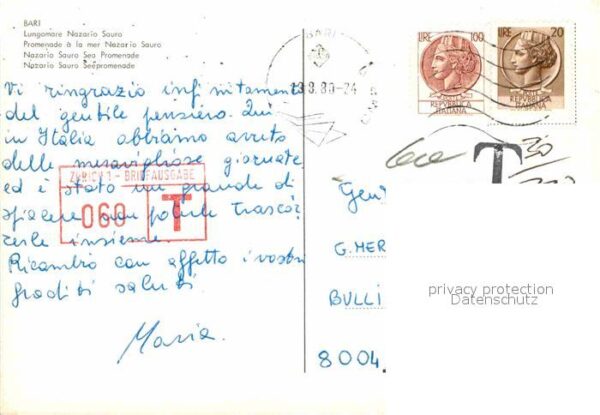 BARI
Lungomare Nazario Sauro
Promenade à la mer Nazario Sauro
Nazario Sauro Sea Promenade
Nazario Sauro Seepromenade
LIRE 100
REPUBBLICA
ITALIANA
LIRE 20
REPUBBLICA
ITALIANA
BARI
Vi ringrazio infinitamente
del gentile pensiero. Qui
in Italia abbiamo avuto
delle meravigliose giornate
ed è stato un grande di
spiacere non poterle trascor
rerle insieme.
Ricambio con affetto i vostri
graditi saluti.
Maria.
ZÜRICH 1 - BRIEFAUSGABE
060 T
T
Gen
G. MER
BULLI
8004
privacy protection
Datenschutz